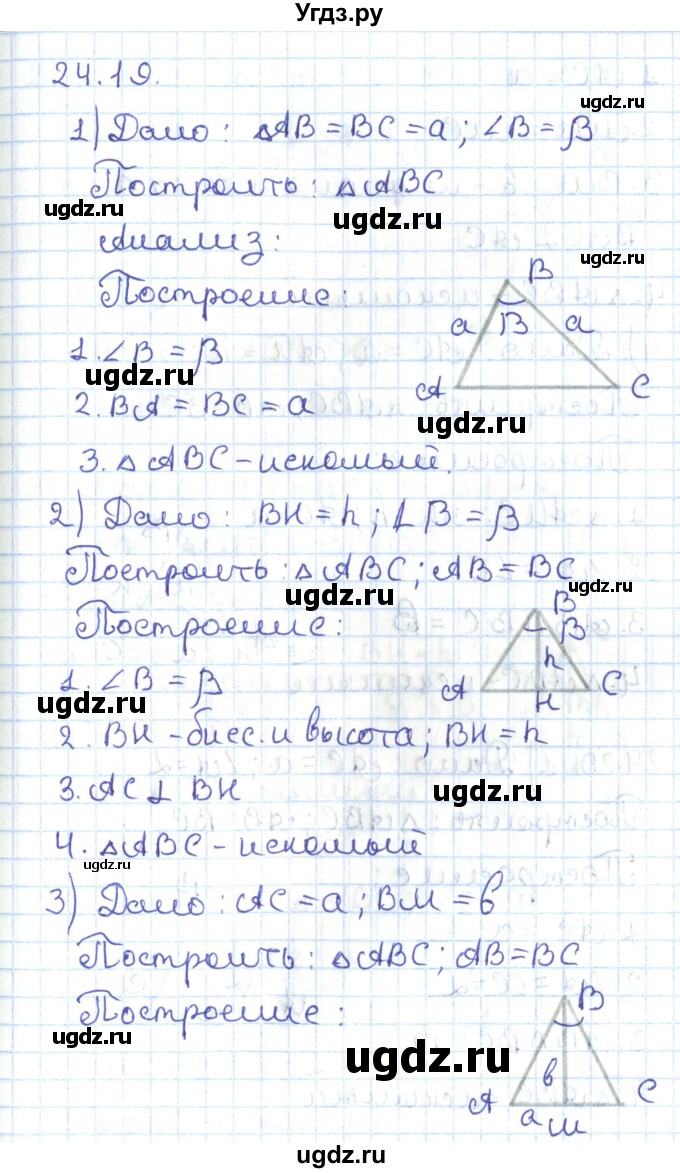 Угдз.ру
24.19.
ugdz.ru
1) Дано: △AB = BC = a; ∠B = β
Построить: △ABC
ugdz.ru
ugdz.ru
Анализ:
ugdz.ru
Построение:
B
a
β
a
A
C
1. ∠B = β
ugdz.ru
2. BA = BC = a
ugdz.ru
3. △ABC – искомый.
2) Дано: BH = h; ∠B = β
Построить: △ABC; AB = BC
ugdz.ru
ugdz.ru
Построение:
B
β
h
A
C
H
1. ∠B = β
ugdz.ru
2. BH – бисс. и высота; BH = h
3. AC ⊥ BH
ugdz.ru
4. △ABC – искомый
ugdz.ru
3) Дано: AC = a; BM = b
Построить: △ABC; AB = BC
Построение:
ugdz.ru
ugdz.ru
B
b
A
C
a
M
ugdz.ru